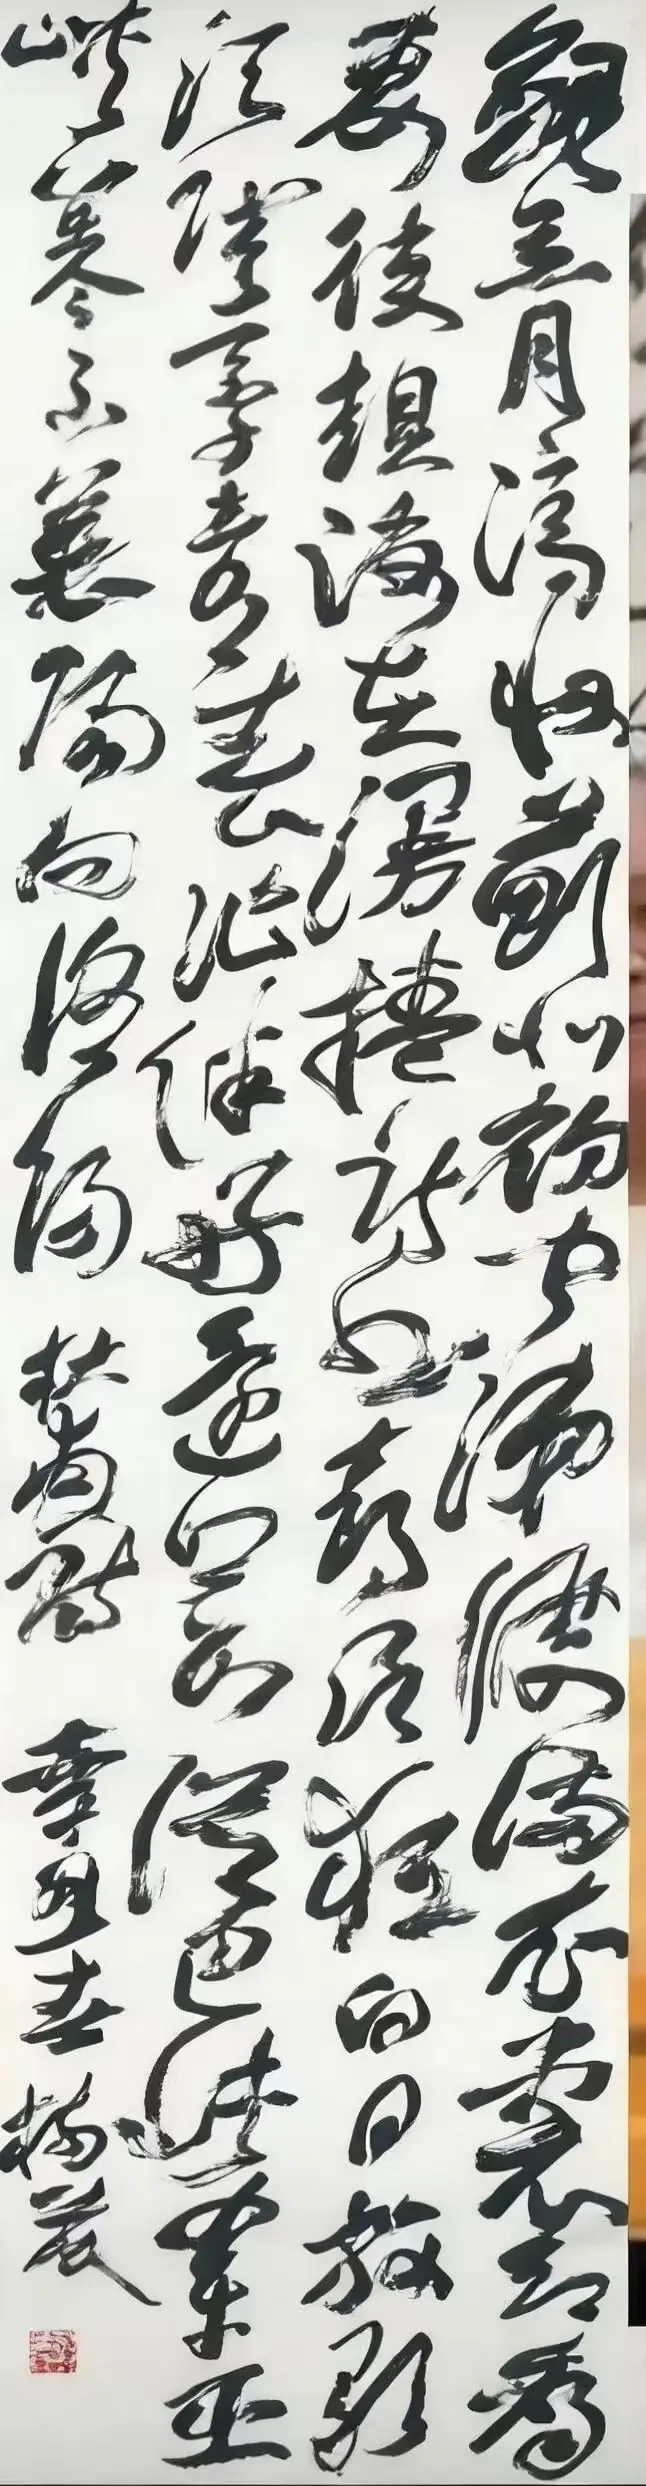 劍外忽傳收薊北初聞涕淚滿衣裳却看
妻子愁何在漫捲詩書喜欲狂白日放歌
須縱酒青春作伴好還鄉即從巴峽穿巫
峽便下襄陽向洛陽 杜甫詩 辛丑春